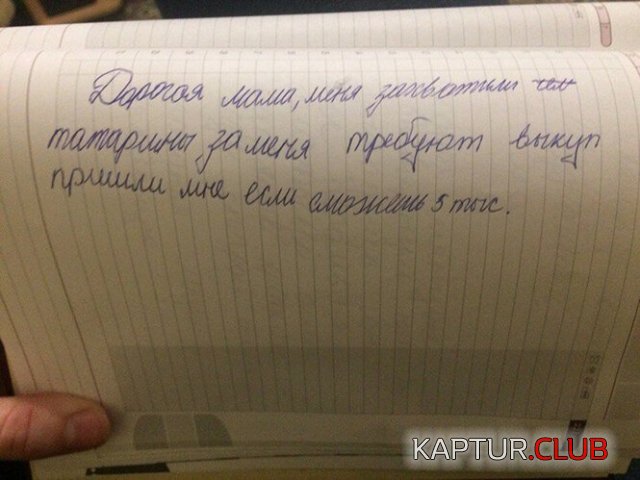 Дорогая мама, меня захватили
татарины, за меня требуют выкуп
пришли мне если сможешь 5 тыс.
KAPTUR.CLUB